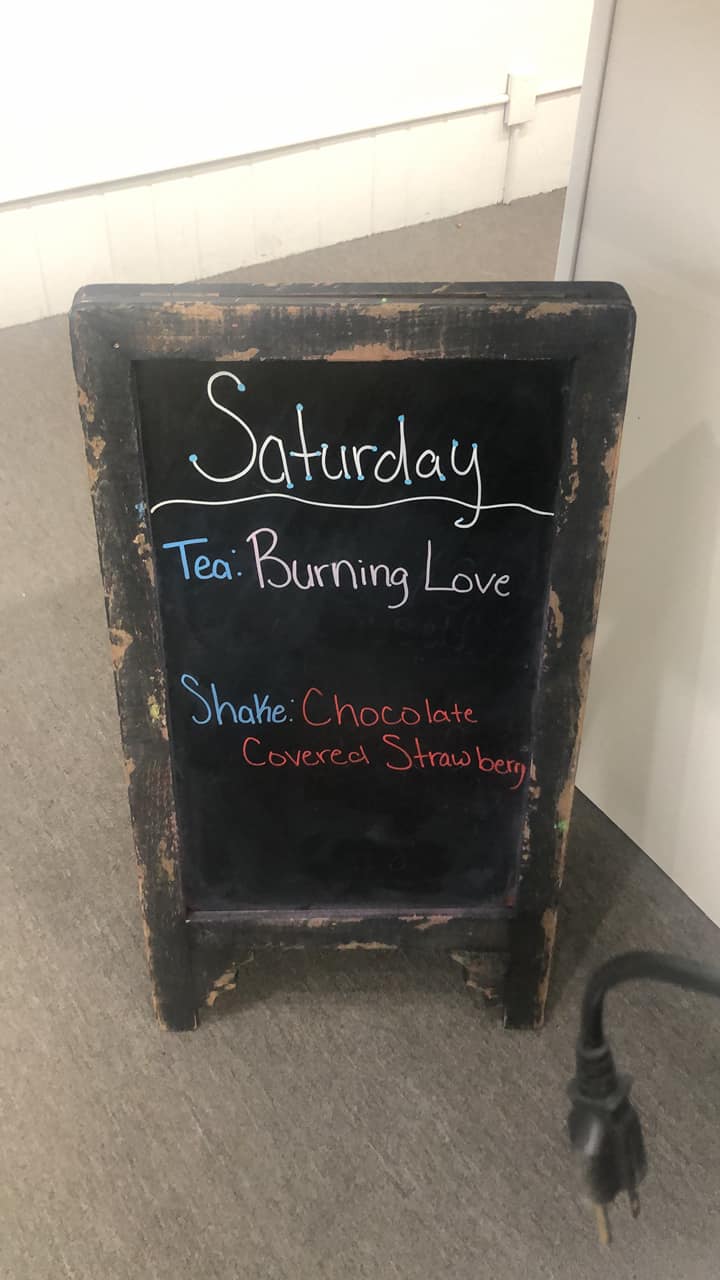 Saturday
Tea: Burning Love
Shake: Chocolate
Covered Strawberry